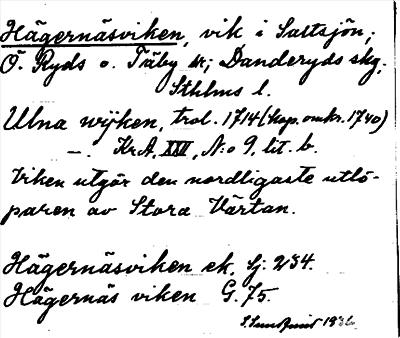 Hägernäsviken, vik i Saltsjön;
Ö. Ryds o. Täby sk; Danderyds skg,
Sthlms l.
Ulna wijken, trol. 1714 (kop. omkr. 1740)
—. KrA, XXVI, N:o 9, lit. b.
Viken utgör den nordligaste utlö-
paren av Stora Värtan.
Hägernäsviken ek, Sj: 234.
Hägernäs viken G. 75.